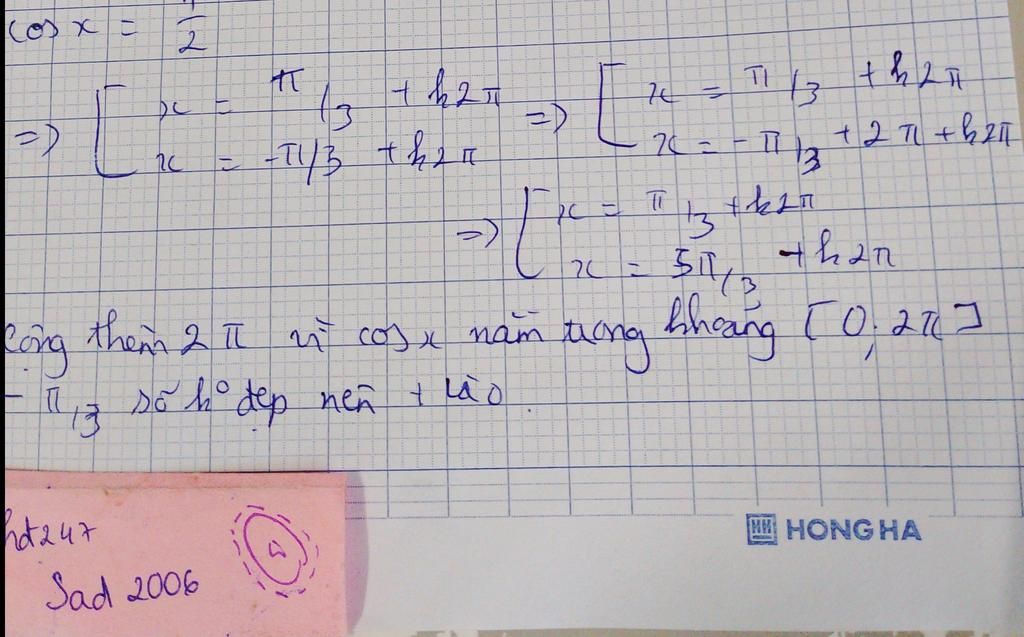 cos x = 1/2
=> [ x = π/3 + k2π => [ x = π/3 + k2π
x = -π/3 + k2π x = -π/3 + 2π + k2π
=> [ x = π/3 + k2π
x = 5π/3 + k2π
Cộng thêm 2π vì cos x nằm trong khoảng [0; 2π]
- π/3 số k° đẹp nên + vào
hdt247
Sad 2006
HONG HA